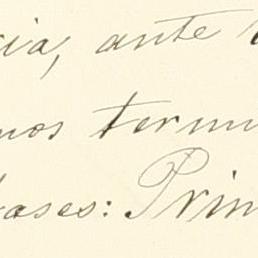 cia, ante
nos term
bases: Prim